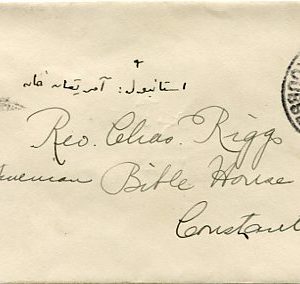 استانبول: آمریقان خانه
Rev. Chas. Riggs
Bible House
Constan